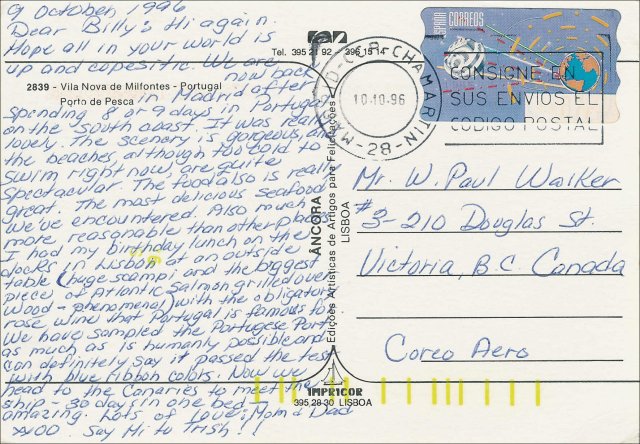 9 October 1996
Dear Billy's Hi again.
Hope all in your world is
up and copesitic. We are
now back
in Madrid after
Spending 8 or 9 days in Portugal
on the South coast. It was really
lovely. The scenery is gorgeous and
the beaches, although too cold to
swim right now, are quite
spectacular. The food also is really
great. The most delicious seafood
we've encountered. Also much
more reasonable than other places
I had my birthday lunch on the
docks in Lisbon at an outside
table (huge scampi and the biggest
piece of Atlantic Salmon grilled over
wood - phenomenal) with the obligatory
rose wine that Portugal is famous for
We have sampled the Portugese Port
as much as is humanly possible and
can definitely say it passed the test
with blue ribbon colors. Now we
head to the Canaries to meet the
ship - 30 days in one bed -
amazing. Lots of Love, Mom & Dad
XXOO Say Hi to Trish!!
2839 - Vila Nova de Milfontes - Portugal
Porto de Pesca
Telef. 395 21 92 - 396 15 14
ÂNCORA
LISBOA
Edições Artísticas de Artigos para Felicitações
IMPRICOR
395 28 30 LISBOA
ESPAÑA
CORREOS
CHAMARTIN
10-10-96
MADRID
-28-
CONSIGNE EN
SUS ENVIOS EL
CODIGO POSTAL
Mr. W. Paul Walker
#3-210 Douglas St.
Victoria, B.C. Canada
Coreo Aero